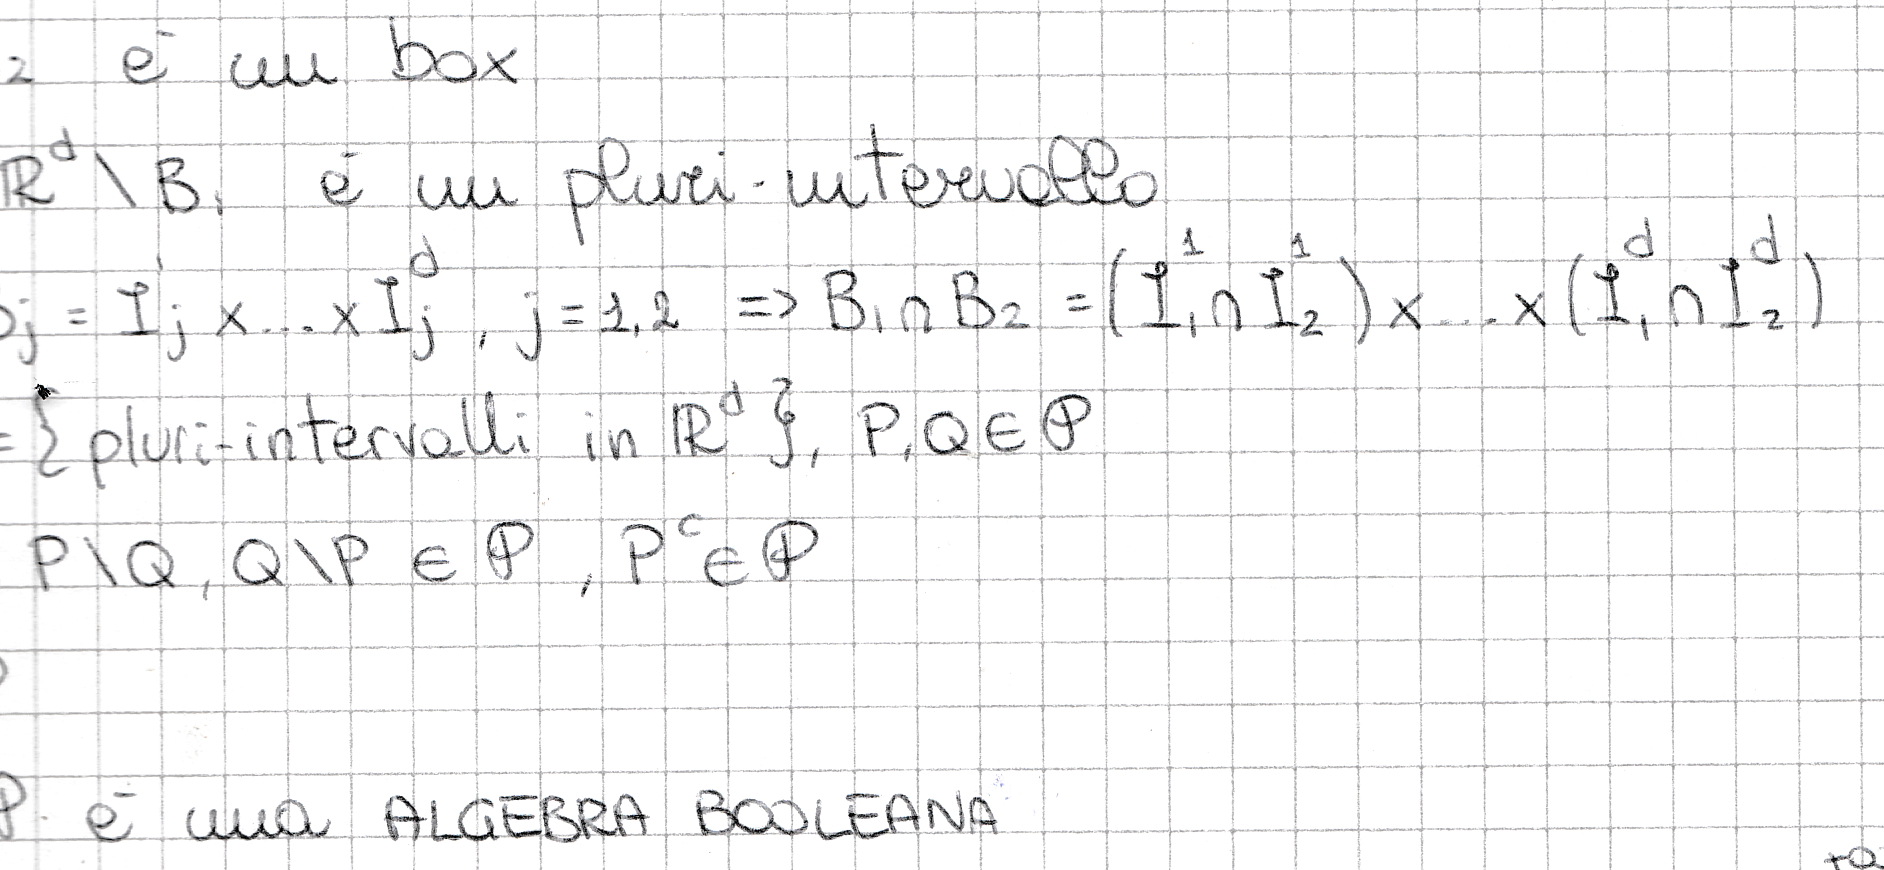 2 è un box
ℝᵈ \ B₁ è un pluri-intervallo
j = I¹ⱼ x...x Iᵈⱼ , j = 1,2 => B₁ ∩ B₂ = (I¹₁ ∩ I¹₂) x...x (Iᵈ₁ ∩ Iᵈ₂)
= { pluri-intervalli in ℝᵈ }, P, Q ∈ 𝒫
P \ Q, Q \ P ∈ 𝒫 , Pᶜ ∈ 𝒫
𝒫 è una ALGEBRA BOOLEANA